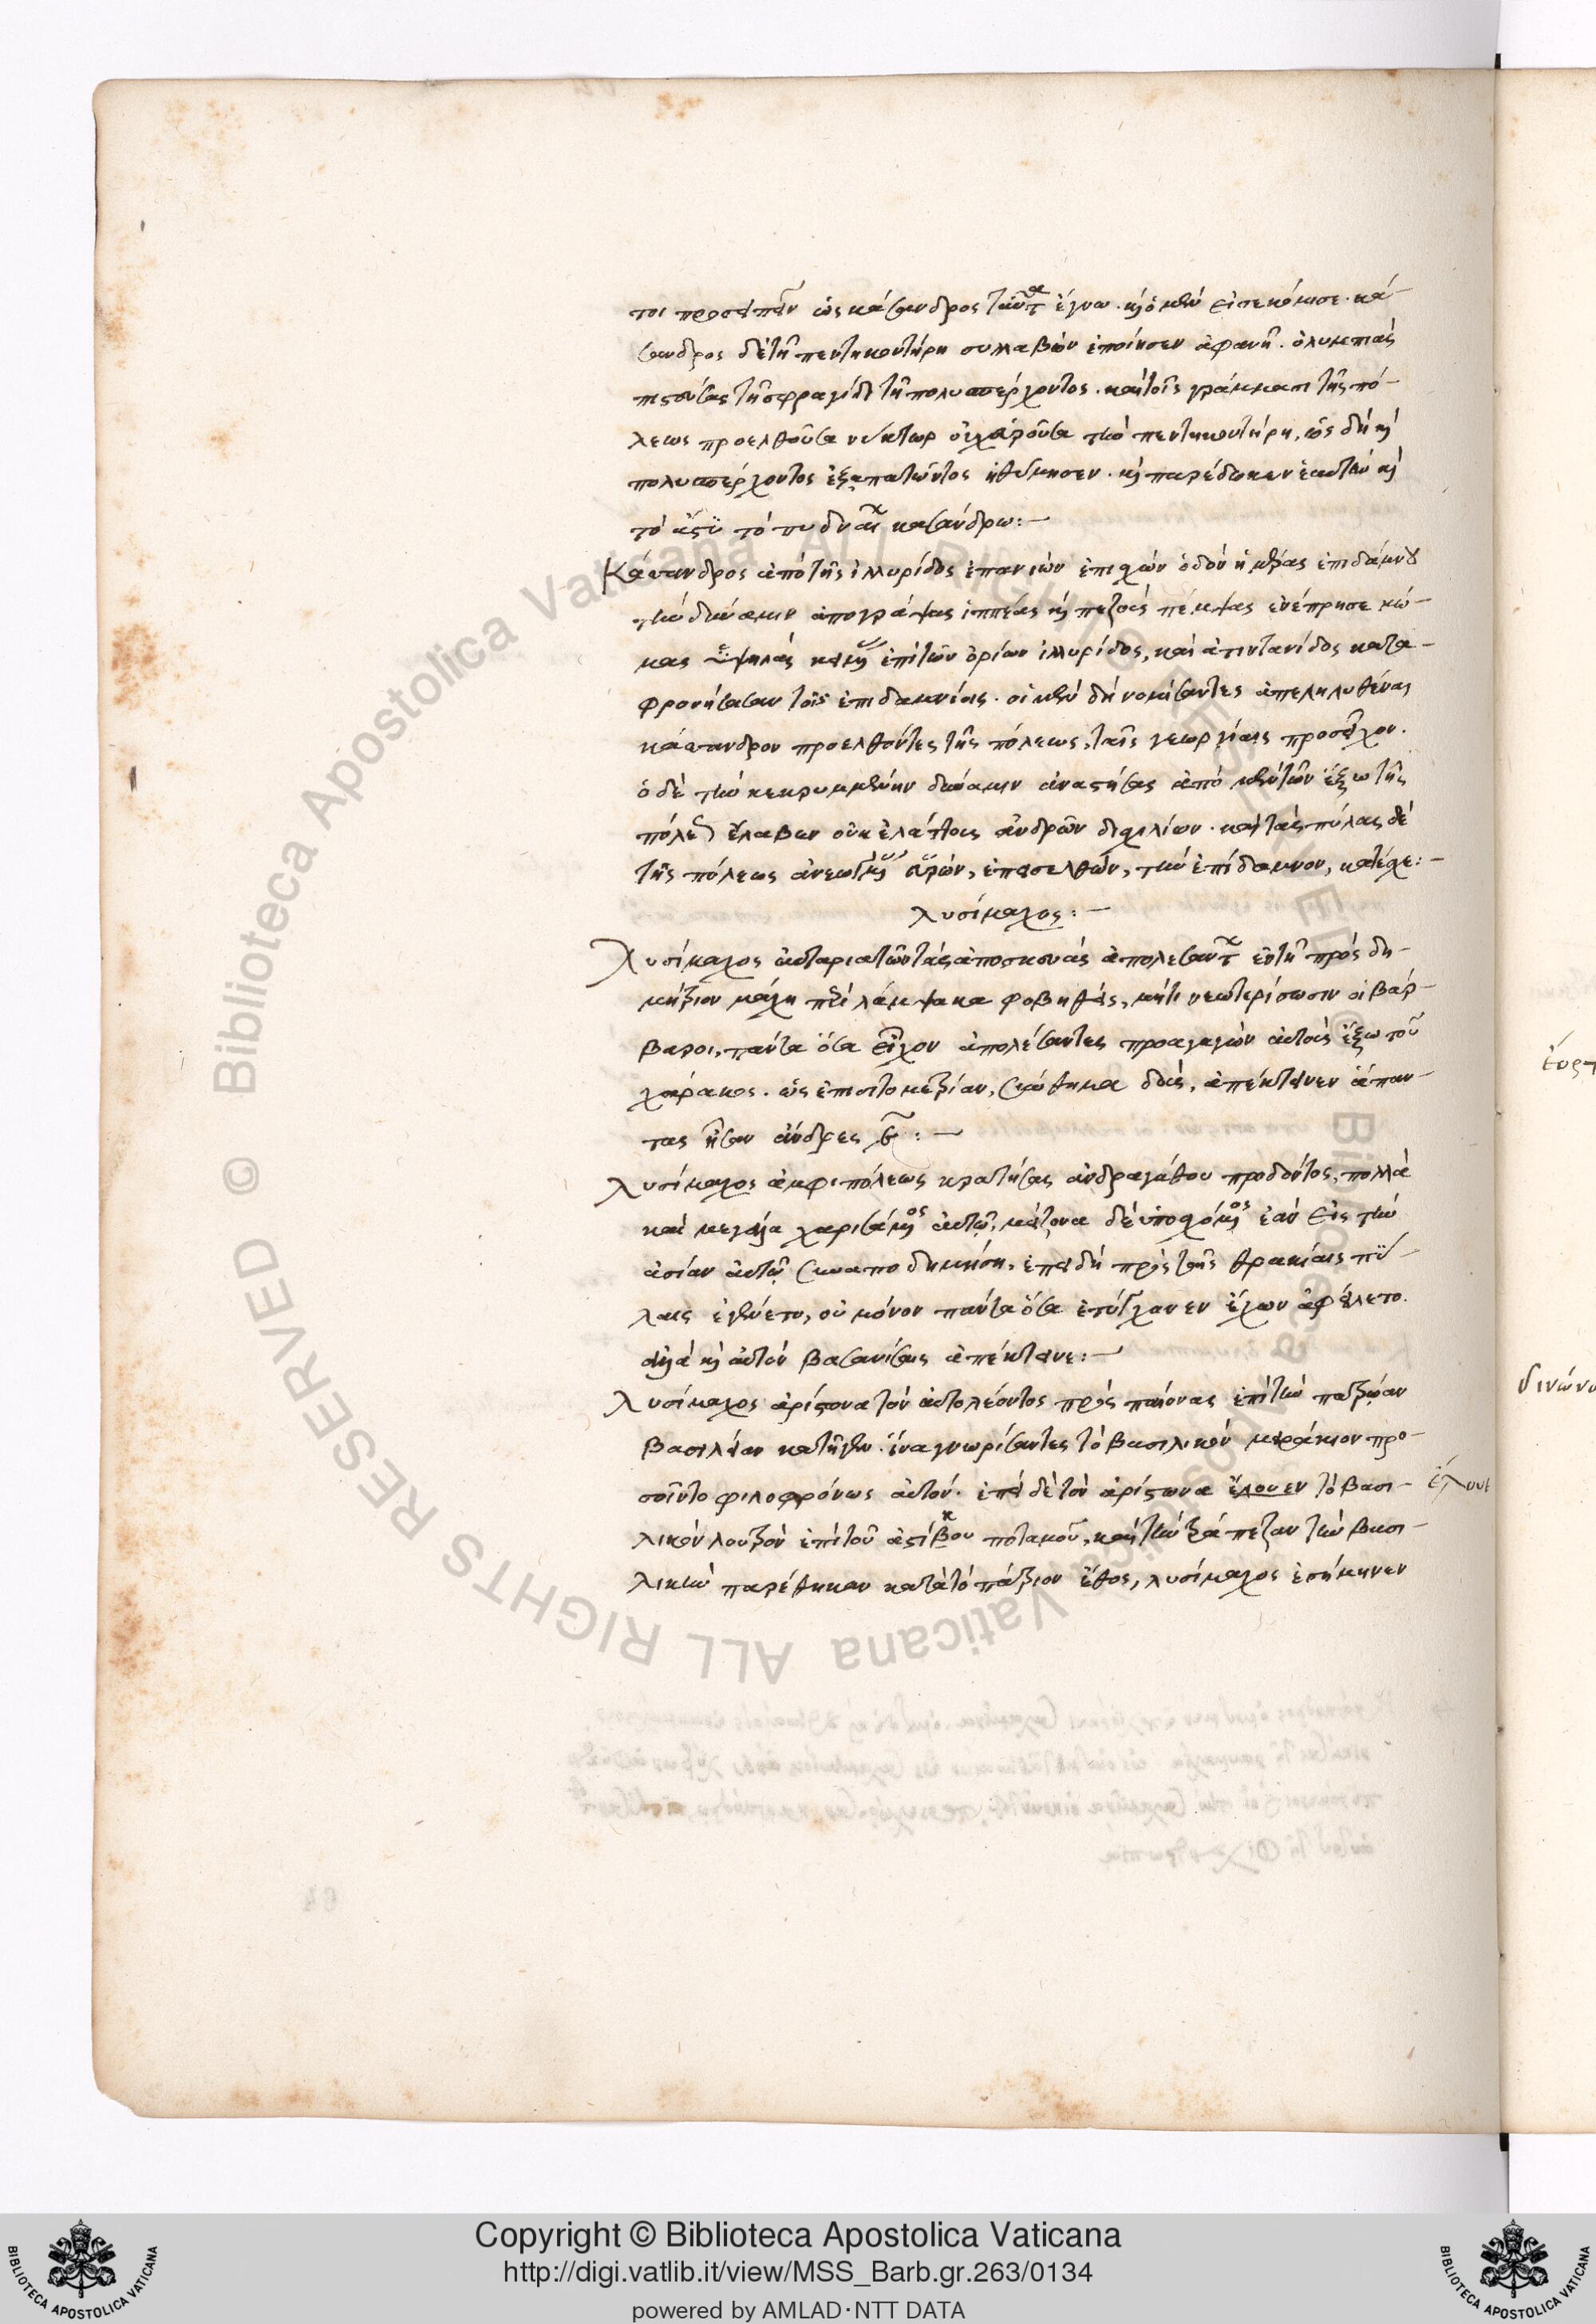 τοι προσειπεῖν ὡς κάσανδρος ταῦτα ἔγνω. καὶ ὁ μὲν εἰσεκόμισε. κά-
σανδρος δὲ τῇ πεντηκοντήρη συλλαβὼν ἐποίησεν ἀφανῆ. ὀλυμπιὰς
πιστεύσας τῇ σφραγίδι τῇ πολυσπέρχοντος. καὶ τοῖς γράμμασι τῆς πό-
λεως προελθοῦσα νύκτωρ οὐχ εὑροῦσα τὴν πεντηκοντήρη, ὡς δὴ καὶ
πολυσπέρχοντος ἐξαπατῶντος ἠθύμησεν. καὶ παρέδωκεν ἑαυτὴν καὶ
τὸ ἄστυ τὸ πυδναῖ κασάνδρω:—
Κάσανδρος ἀπὸ τῆς ἰλλυρίδος ἐπανιὼν ἐπισχὼν ὁδὸν ἡμέρας ἐπιδάμνου
τὴν δύναμιν ἀποκρύψας ἱππέας καὶ πεζοὺς πέμψας ἐνέπρησε κώ-
μας ὑψηλὰς κειμένας ἐπὶ τῶν ὁρίων ἰλλυρίδος, καὶ ἀτιντανίδος κατα-
φρονήσασαν τοῖς ἐπιδαμνίοις. οἱ μὲν δὴ νομίσαντες ἀπεληλυθέναι
κάσανδρον προελθόντες τῆς πόλεως, ταῖς γεωργίαις προσεῖχον.
ὁ δὲ τὴν κεκρυμμένην δύναμιν ἀναστήσας ἀπὸ μὲν τῶν ἔξω τῆς
πόλεως ἔλαβεν οὐκ ἐλάττους ἀνδρῶν δισχιλίων. καὶ τὰς πύλας δὲ
τῆς πόλεως ἀνεωγμένας εὑρὼν, ἐπεισελθὼν, τὴν ἐπίδαμνον, κατέσχε:—
λυσίμαχος:—
Λυσίμαχος αὐταριατῶν τὰς ἀποσκευὰς ἀπολεσάντων ἐν τῇ πρὸς δη-
μήτριον μάχῃ περὶ λάμψακα φοβηθεὶς, μή τι νεωτερίσωσιν οἱ βάρ-
βαροι, πάντα ὅσα εἶχον ἀπολέσαντες προαγαγὼν αὐτοὺς ἔξω τοῦ
χάρακος. ὡς ἐπὶ σιτομετρίαν, σύνθημα δοὺς, ἀπέκτεινεν ἅπαν-
τας ἦσαν ἄνδρες
Λυσίμαχος ἀμφιπόλεως κρατήσας ἀνδραγάθου προδόντος, πολλὰ
καὶ μεγάλα χαρισάμενος αὐτῷ, μείζονα δὲ ὑποσχόμενος ἐὰν εἰς τὴν
ἀσίαν αὐτῷ συναποδημήσῃ, ἐπειδὴ πρὸς ταῖς θρακίαις πύ-
λαις ἐγένετο, οὐ μόνον πάντα ὅσα ἐτύγχανεν ἔχων ἀφείλετο.
ἀλλὰ καὶ αὐτὸν βασανίσας ἀπέκτεινε:—
Λυσίμαχος ἀρίστωνα τὸν αὐτολέοντος πρὸς παίονας ἐπὶ τὴν πατρῴαν
βασιλείαν κατῆγεν. ἵνα γνωρίσαντες τὸ βασιλικὸν μειράκιον προ-
σοῖντο φιλοφρόνως αὐτόν. ἐπεὶ δὲ τὸν ἀρίστωνα ἔλουεν τὸ βασι- ἔλουε
λικὸν λουτρὸν ἐπὶ τοῦ ἀστίβου ποταμοῦ, καὶ τὴν τράπεζαν τὴν βασι-
λικὴν παρέθηκαν κατὰ τὸ πάτριον ἔθος, λυσίμαχος ἐσήμηνεν
Copyright © Biblioteca Apostolica Vaticana
http://digi.vatlib.it/view/MSS_Barb.gr.263/0134
powered by AMLAD·NTT DATA